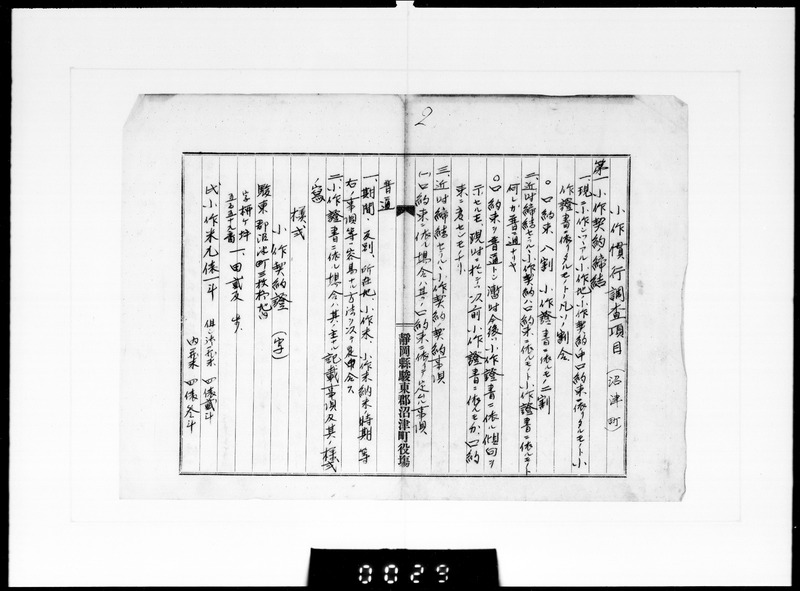 2
小作慣行調査項目（沼津町）
第一 小作契約締結
一、現ニ小作シツヽアル小作地小作契約中口約束ニ依リタルモノト小
作證書ニ依リタルモノトノ凡ソノ割合
○口約束 八割 小作證書ニ依ルモノ二割
二、近時締結セラルヽ小作契約ハ口約束ニ依ルモノト小作證書ニ依ルモノト
何レガ普通ナリヤ
○口約束ヲ普通トシ漸時今後ハ小作證書ニ依ル傾向ヲ
示セルモ現時ニ於テハ以前小作證書ニ依ルモノガ口約
束ニ
三、近時締結セラルヽ小作契約契約事項
(一)口約束ニ依ル場合ハ其ノ口約束ニ依リ定ムル事項
静岡縣駿東郡沼津町役場
普通
一、期間、反別、所在地、小作米、小作米納末ノ時期等
右ノ事項等ハ容易ナル方法ヲ以テ是申合ス
二、小作證書ニ依ル場合ハ其ノ主ナル記載事項及其ノ樣式
ノ寫
樣式
小作契約證（字）
駿東郡沼津町三枚橋地内
五百五十九番 一、田貳反 歩
氏小作米九俵一斗
四俵貳斗
内 四俵参斗
0029